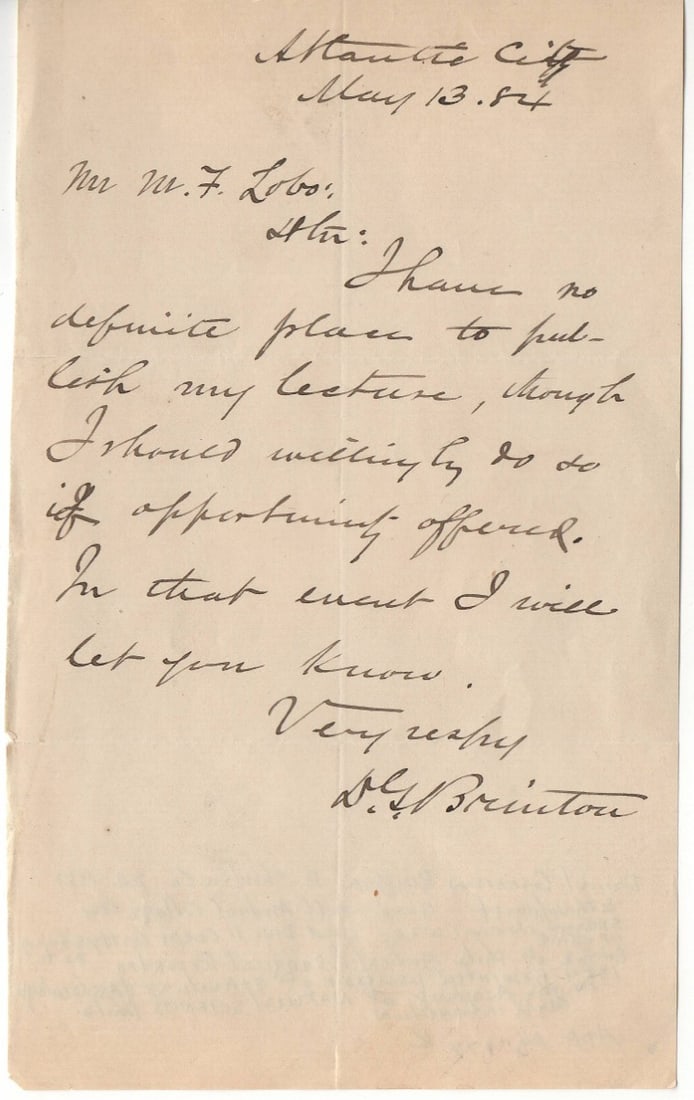 Atlantic City
May 13. 84
Mr M. F. Lobo:
Sir:
I have no
definite place to pub-
lish my lecture, though
I should willingly do so
if opportunity offered.
In that event I will
let you know.
Very respy
D. G. Brinton